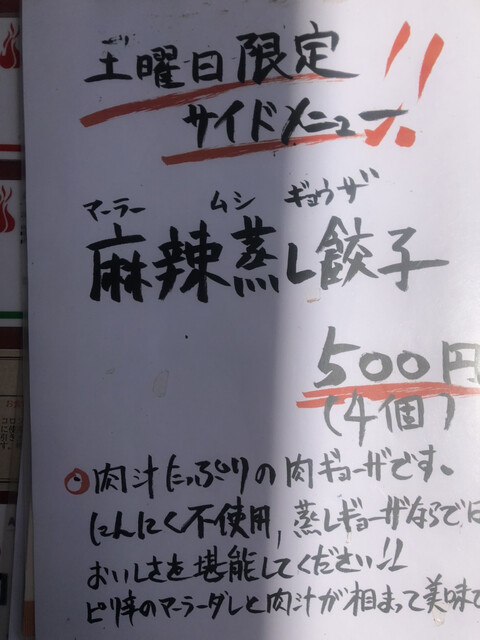 土曜日限定
サイドメニュー!!
マーラー ムシ ギョウザ
麻辣蒸し餃子
500円
(4個)
肉汁たっぷりの肉ギョーザです。
にんにく不使用,蒸しギョーザならでは
おいしさを堪能してください!!
ピリ辛のマーラーダレと肉汁が相まって美味で